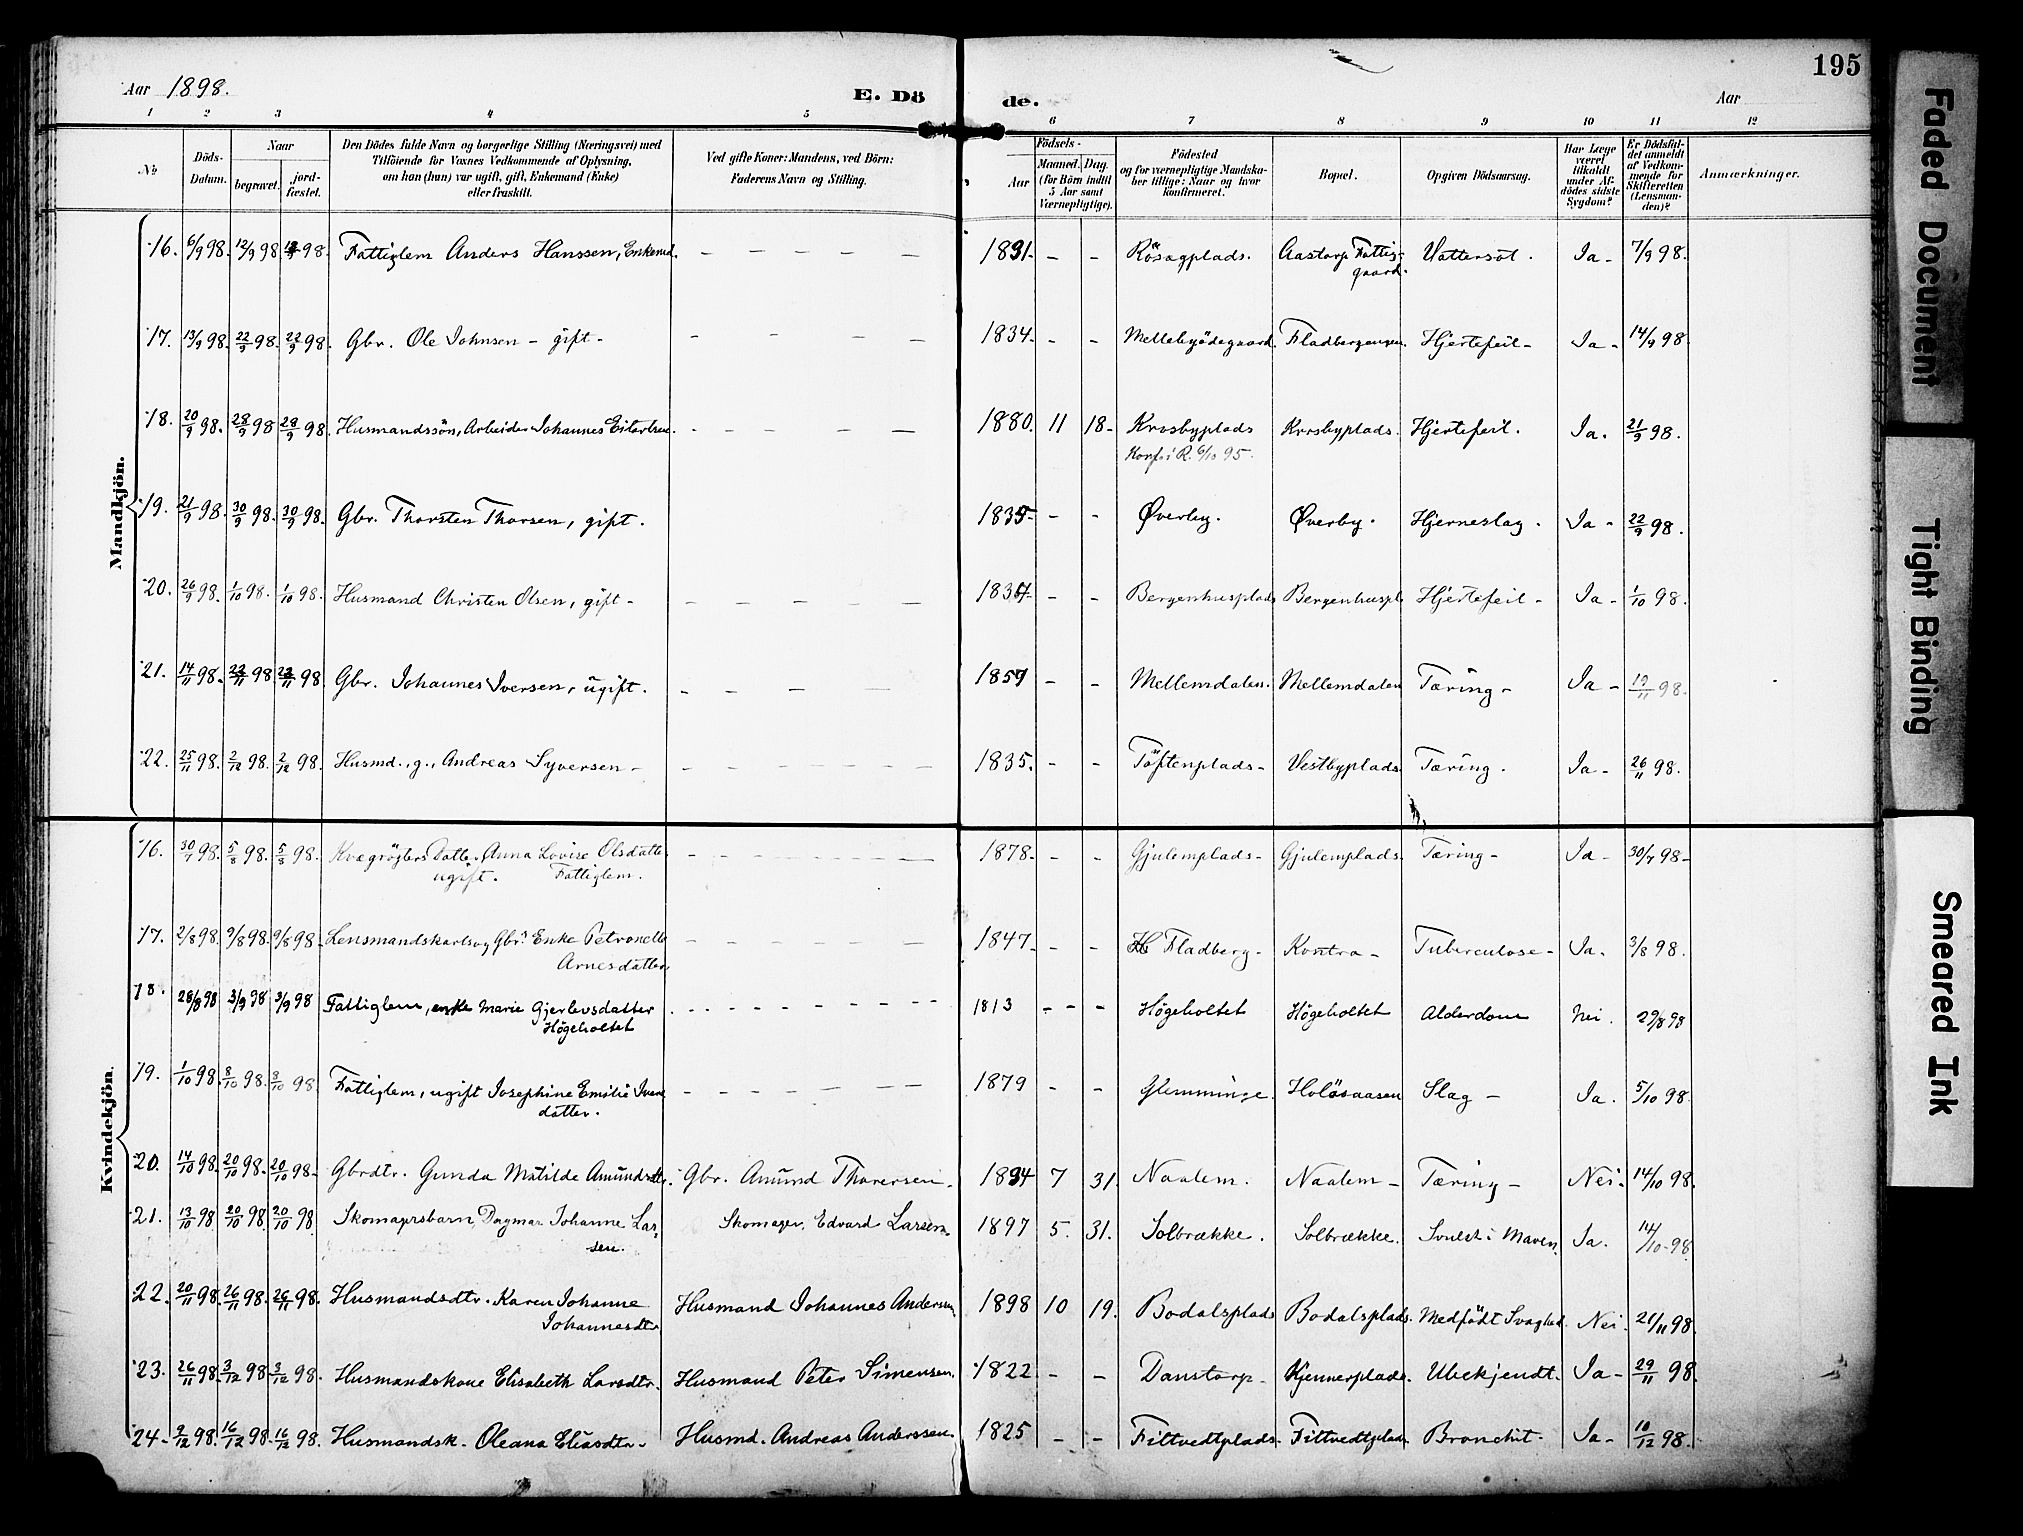 Aar 1898.
E. Døde.
195
Aar
1 2 3 4 5 6 7 8 9 10 11 12
No
Döds-Datum.
Naar
begravet.
jord-fæstet.
Den Dödes fulde Navn og borgerlige Stilling (Næringsvei) med
Tilföiende for Voxnes Vedkommende af Oplysning,
om han (hun) var ugift, gift, Enkemand (Enke)
eller fraskilt.
Ved gifte Koner: Mandens, ved Börn:
Faderens Navn og Stilling.
Födsels-
Aar
Maaned. Dag.
(for Börn indtil
5 Aar samt
Værnepligtige).
Födested
og for værnepligtige Mandska-
ber tillige: Naar og hvor
konfirmeret.
Bopæl.
Opgiven Dödsaarsag.
Har Læge
været
tilkaldt
under Af-
dödes sidste
Sygdom?
Er Dödsfal-
det anmeldt
af Vedkom-
mende for
Skifteretten
(Lensman-
den)?
Anmærkninger.
Mandkjön.
16. 6/9 98. 12/9 98 98. Fattiglem Anders Hanssen, Enkemd. - - - - - 1831. - - Rösægplads. Aastorp Fattig-
gaard. Vattersot. Ja - 7/9 98.
17. 13/9 98. 22/9 98. 22/9 98. Gbr. Ole Johnsen - gift - - - - - 1834. - - Mellebyödegaard. Fladbergengen. Hjertefeil - Ja - 14/9 98.
18. 20/9 98. 28/9 98 28/9 98. Husmandssön, Arbeider Johannes Eilertsen. - - - - 1880. 11 18- Krosbyplads Krosbyplads. Hjertefeil. Ja. 21/9 98.
Konf. i R. 6/10 95.
19. 21/9 98. 30/9 98. 30/9 98. Gbr. Thorsten Thorsen, gift. 1835 - - Øverby. Øverby. Hjerneslag. Ja - 22/9 98.
20. 26/9 98. 1/10 98. 1/10 98. Husmand Christen Olsen, gift - - - - - - - Bergenhusplads Bergenhuspl. Hjertefeil - Ja - 1/10 98.
21. 14/11 98. 98. 98. Gbr. Johannes Iversen, ugift. - - - - 1857 - - Mellemdalen. Mellemdalen Tæring - Ja - 19/11 98.
22. 25/11 98. 2/12 98. 2/12 98. Husmd., g., Andreas Syversen - - - - - - - 1835. - - Töftenplads - Vestbyplads. Tæring. Ja - 26/11 98.
Kvindekjön.
16. 30/7 98. 5/8 98. 5/8 98. Kvægrögters Datter Anna Lovise Olsdatter
ugift. Fattiglem. - - - - - - - 1878. - - Gjulemplads - Gjulemplads. Tæring - Ja - 30/7 98-
17. 2/8 98. 9/8 98. 9/8 98. Lensmandskarls og Gbrs Enke Petronelle
Arnesdatter. - - - - - - - 1847. - - Fladberg - Kontra - Tuberculose - Ja. 3/8 98.
18. 28/8 98 3/9 98 3/9 98 Fattiglem, enke Marie Gjerlevsdatter
Högeholtet - - - - - - - 1813 - - - Högeholtet Högeholtet Alderdom Nei. 29/8 98
19. 1/10 98. 8/10 98. 8/10 98. Fattiglem, ugift Josephine Emilie Ivers
datter. - - - - - - 1879 - - Glemminge. Holösaasen Slag - Ja. 5/10 98.
20. 14/10 98. 20/10 98. 20/10 98. Gbrdtr. Gunda Matilde Amundsdtr. Gbr. Amund Thorersen. 1894 7 31. Naalem. Naalem - Tæring - Nei. 14/10 98.
21. 13/10 98 20/10 98. 20/10 98. Skomagrsbarn, Dagmar Johanne Lar-
sen. Skomager, Edvard Larsen. 1897 5. 31. Solbrække. Solbrække. i Maven Ja. 14/10 98
22. 20/11 98. 26/11 98. 26/11 98. Husmandsdtr. Karen Johanne
Johannesdtr Husmand Johannes Andersen. 1898 10 19. Bodalsplads Bodalsplads. Medfödt Svaghed. Nei. 21/11 98.
23. 26/11 98. 3/12 98 3/12 98. Husmandskone Elisabeth Larsdtr. Husmand Peter Simensen. 1822 - - Danstorp - Kjennerplads. Ubekjendt. Ja - 29/11 98.
24. 9/12 98. 16/12 98. 16/12 98. Husmandsk. Oleana Eliasdtr. Husmd. Andreas Anderssen. 1825 - - Fittvedtplads. Fittvedtplads. Bronchit. Ja - 10/12 98.
Faded Document
Tight Binding
Smeared Ink